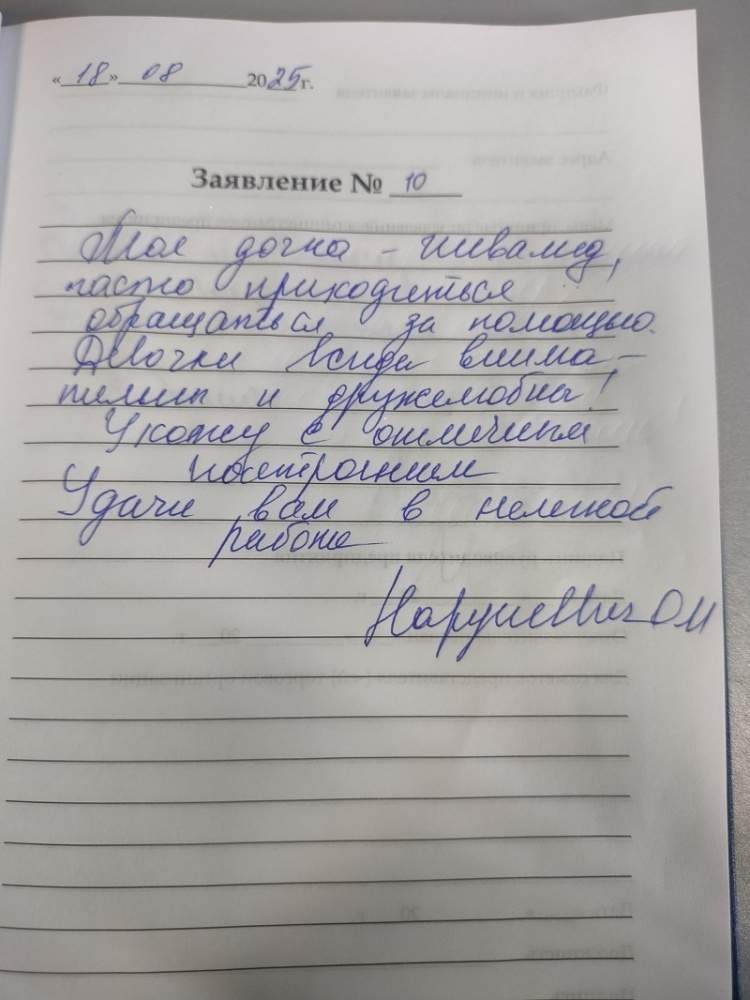 «18» 08 2025 г.
Заявление № 10
Моя дочка – инвалид,
часто приходиться
обращаться за помощью.
Девочки всегда внима-
тельны и дружелюбны!
Ухожу с отличным
настроением
Удачи вам в нелегкой
работе